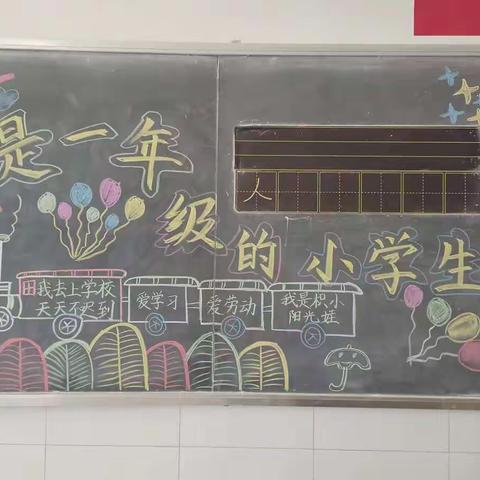 是一年
级的小学生
人
我去上学校
天天不迟到
爱学习
爱劳动
我是积小
阳光娃